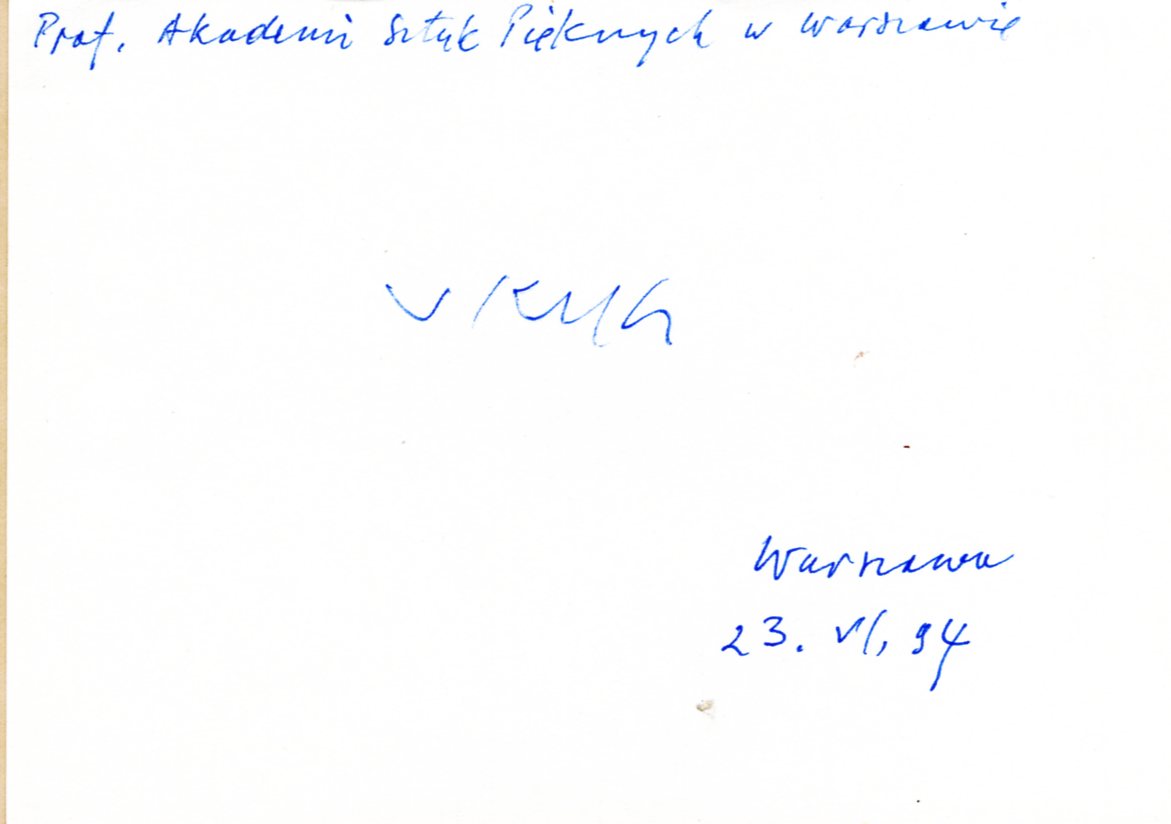 Prof. Akademii Sztuk Pięknych w Warszawie
Warszawa
23. VI, 94